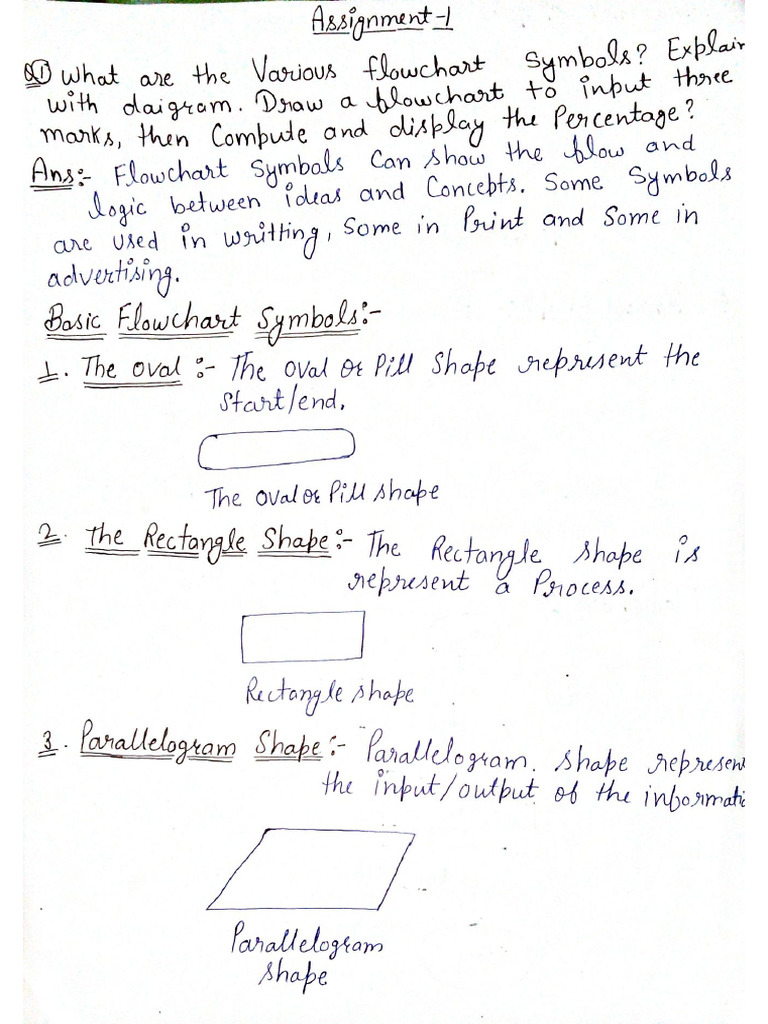 Assignment-1
Q1) What are the Various flowchart Symbols? Explain
with daigram. Draw a flowchart to input three
marks, then Compute and display the Percentage?
Ans:- Flowchart Symbols Can show the flow and
logic between ideas and Concepts. Some Symbols
are used in writting, Some in Print and Some in
advertising.
Basic Flowchart Symbols:-
1. The oval :- The oval or Pill Shape represent the
Start/end.
The oval or Pill shape
2. The Rectangle Shape:- The Rectangle shape is
represent a Process.
Rectangle shape
3. Parallelogram Shape:- Parallelogram. shape represen
the input/output of the informati
Parallelogram
shape